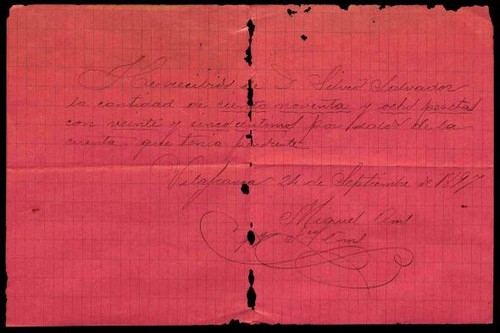 He recibido de D. Silvio Salvador
la cantidad de ciento noventa y ocho pesetas
con veinte y cinco centimos por saldo de la
cuenta que tenia pendiente
Vilafranca 24 de Septiembre de 1897
Miguel